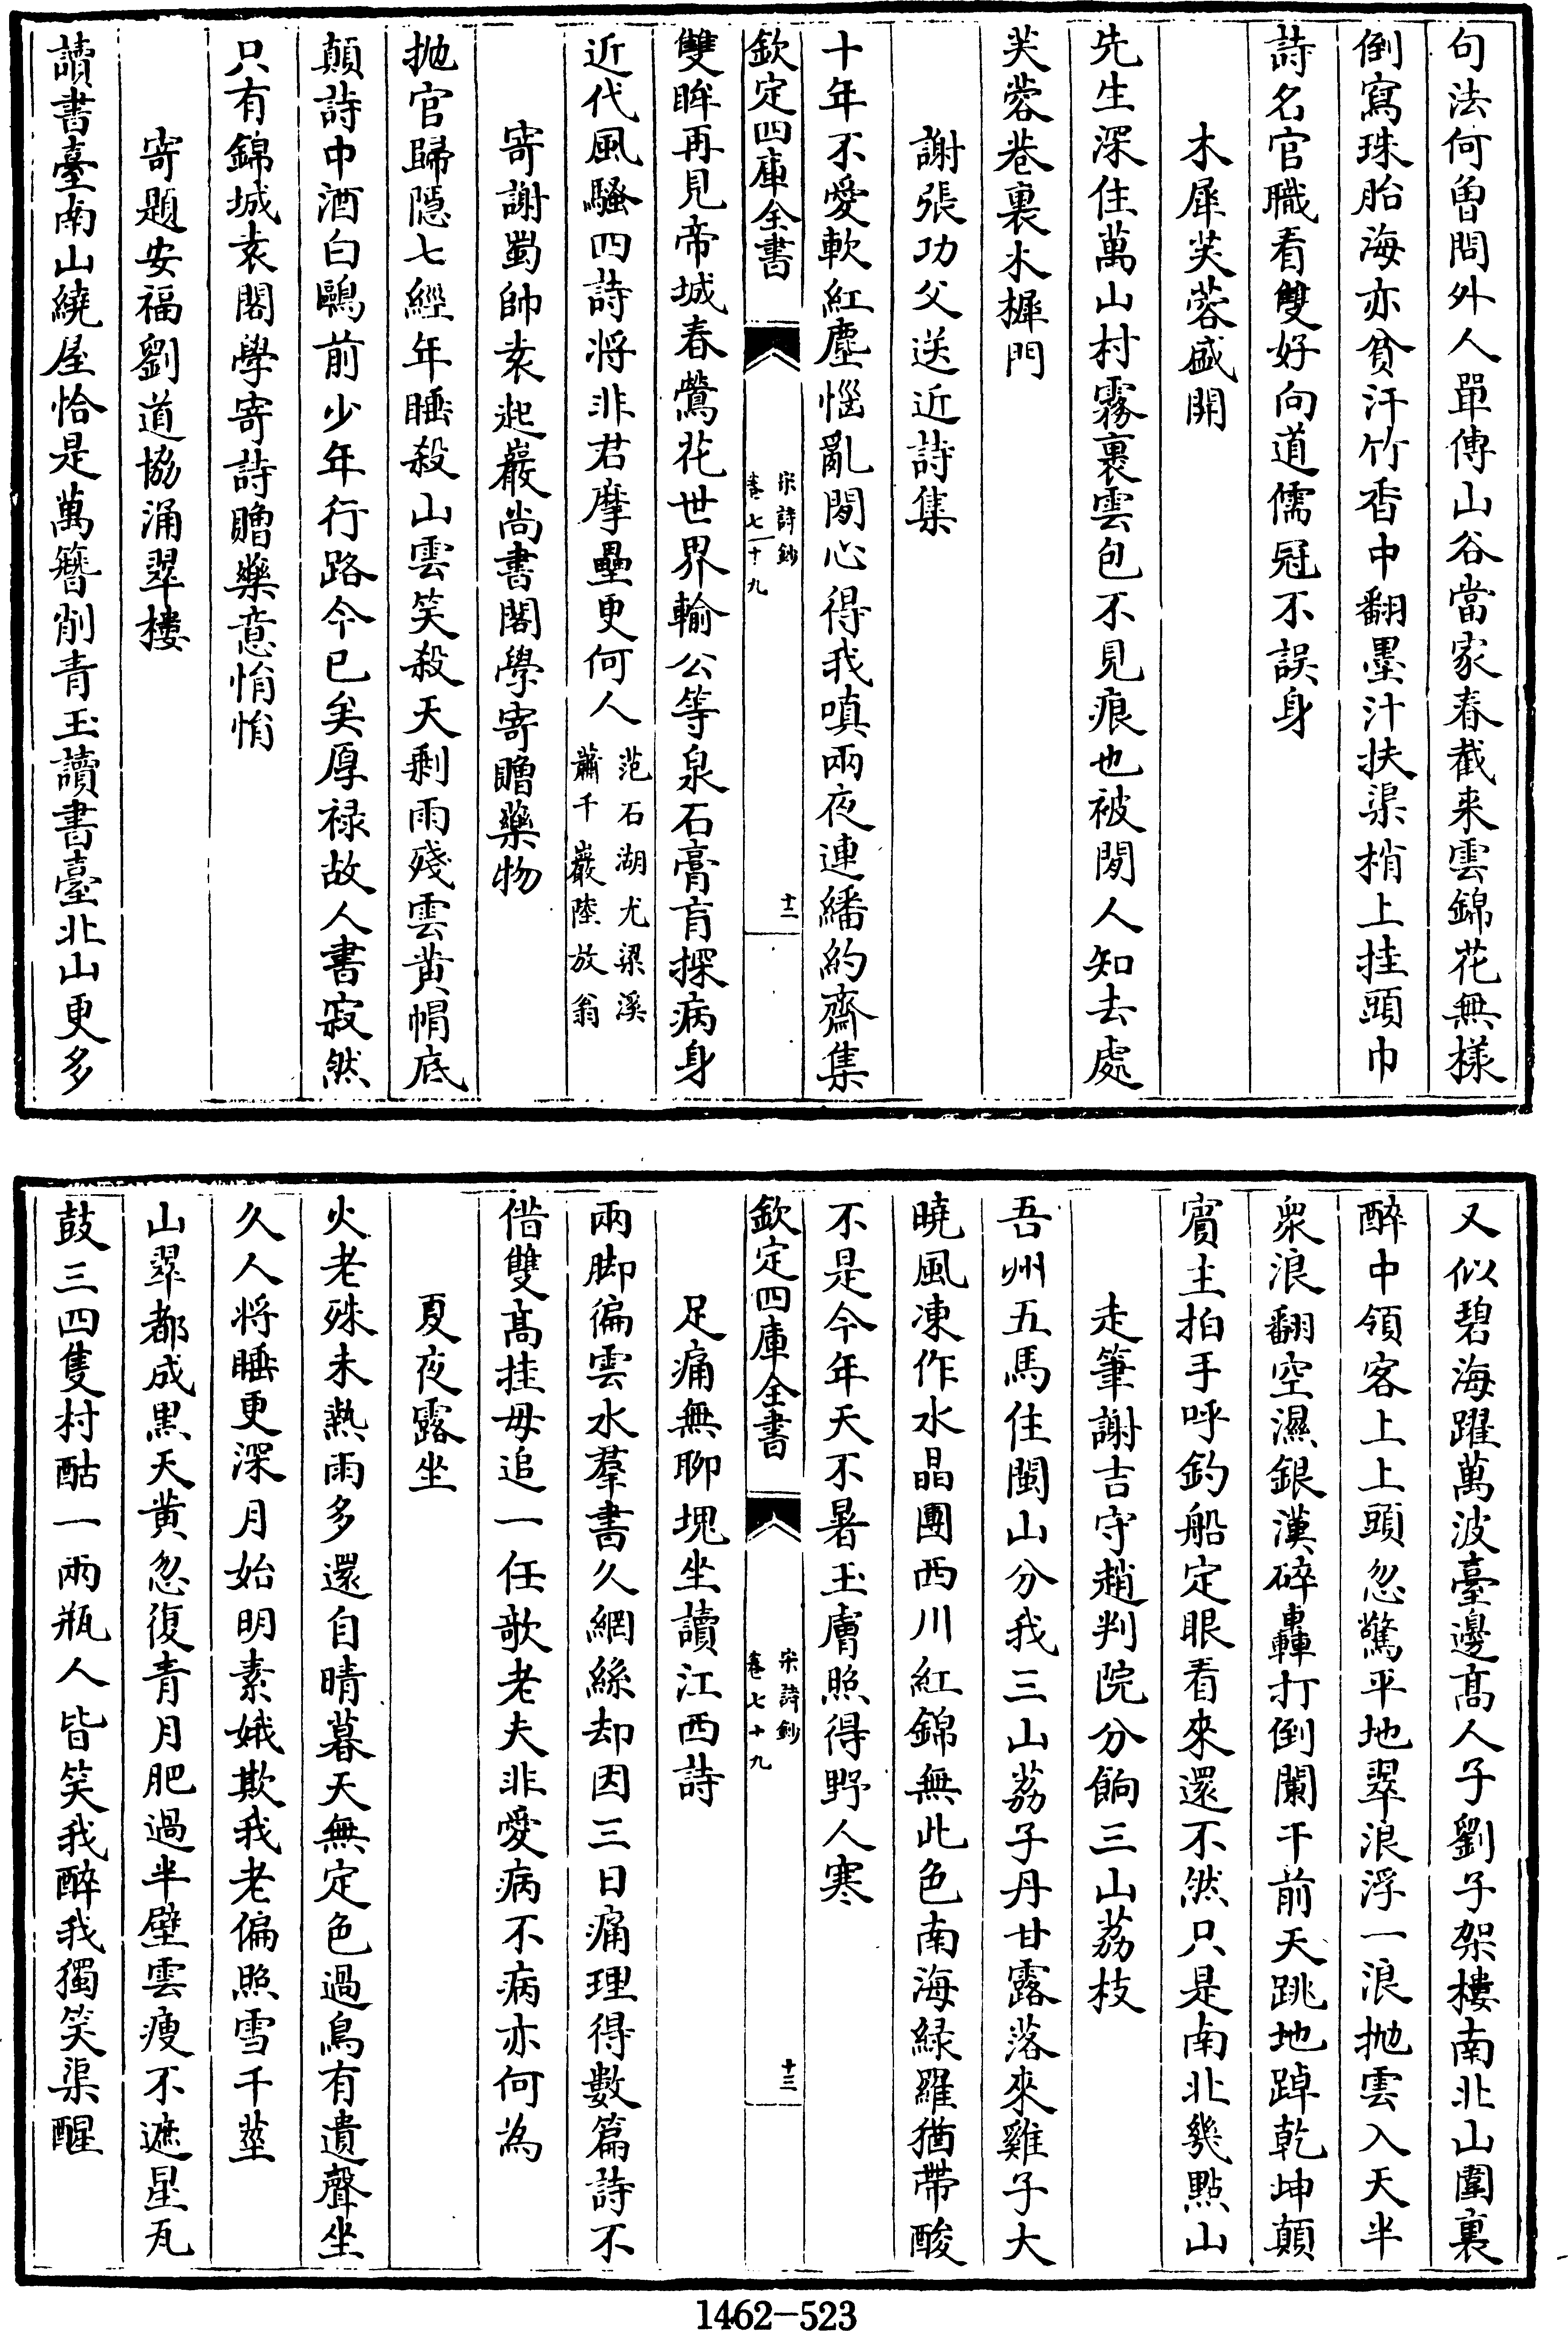 句法何曾問外人單傳山谷當家春截来雲錦花無様
倒寫珠胎海亦貧汗竹香中翻墨汁扶渠梢上挂頭巾
詩名官職看雙好向道儒冠不誤身
木犀芙蓉盛開
先生深住萬山村霧裏雲包不見痕也被閒人知去處
芙蓉巷裏木樨門
謝張功父送近詩集
十年不愛軟紅塵惱亂閒心得我嗔兩夜連繙約齋集
欽定四庫全書
宋詩鈔
卷七十九
十二
雙眸再見帝城春鶯花世界輸公等泉石膏肓探病身
近代風騷四詩将非君摩壘更何人范石湖尤梁溪
蕭千巖陸放翁
寄謝蜀帥袁起巖尚書閣學寄贈藥物
抛官歸隠七經年睡殺山雲笑殺天剩雨殘雲黄帽底
顛詩中酒白鷗前少年行路今已矣厚禄故人書寂然
只有錦城袁閣學寄詩贈藥意悁悁
寄題安福劉道協涌翠樓
讀書臺南山繞屋恰是萬簪削青玉讀書臺北山更多
又似碧海躍萬波臺邊髙人子劉子架樓南北山圍裏
醉中領客上上頭忽驚平地翠浪浮一浪抛雲入天半
衆浪翻空濕銀漢碎轟打倒闌干前天跳地踔乾坤顛
賓主拍手呼釣船定眼看來還不然只是南北幾點山
走筆謝吉守趙判院分餉三山荔枝
吾州五馬住閩山分我三山荔子丹甘露落來雞子大
曉風凍作水晶團西川紅錦無此色南海緑羅猶帶酸
不是今年天不暑玉膚照得野人寒
欽定四庫全書
宋詩鈔
卷七十九
十三
足痛無聊塊坐讀江西詩
兩脚徧雲水羣書久網絲却因三日痛理得數篇詩不
借雙髙挂毋追一任欹老夫非愛病不病亦何為
夏夜露坐
火老殊未熱雨多還自晴暮天無定色過鳥有遺聲坐
久人将睡更深月始明素娥欺我老偏照雪千莖
山翠都成黒天黄忽復青月肥過半壁雲痩不遮星瓦
鼓三四隻村酤一兩瓶人皆笑我醉我獨笑渠醒
1462-523